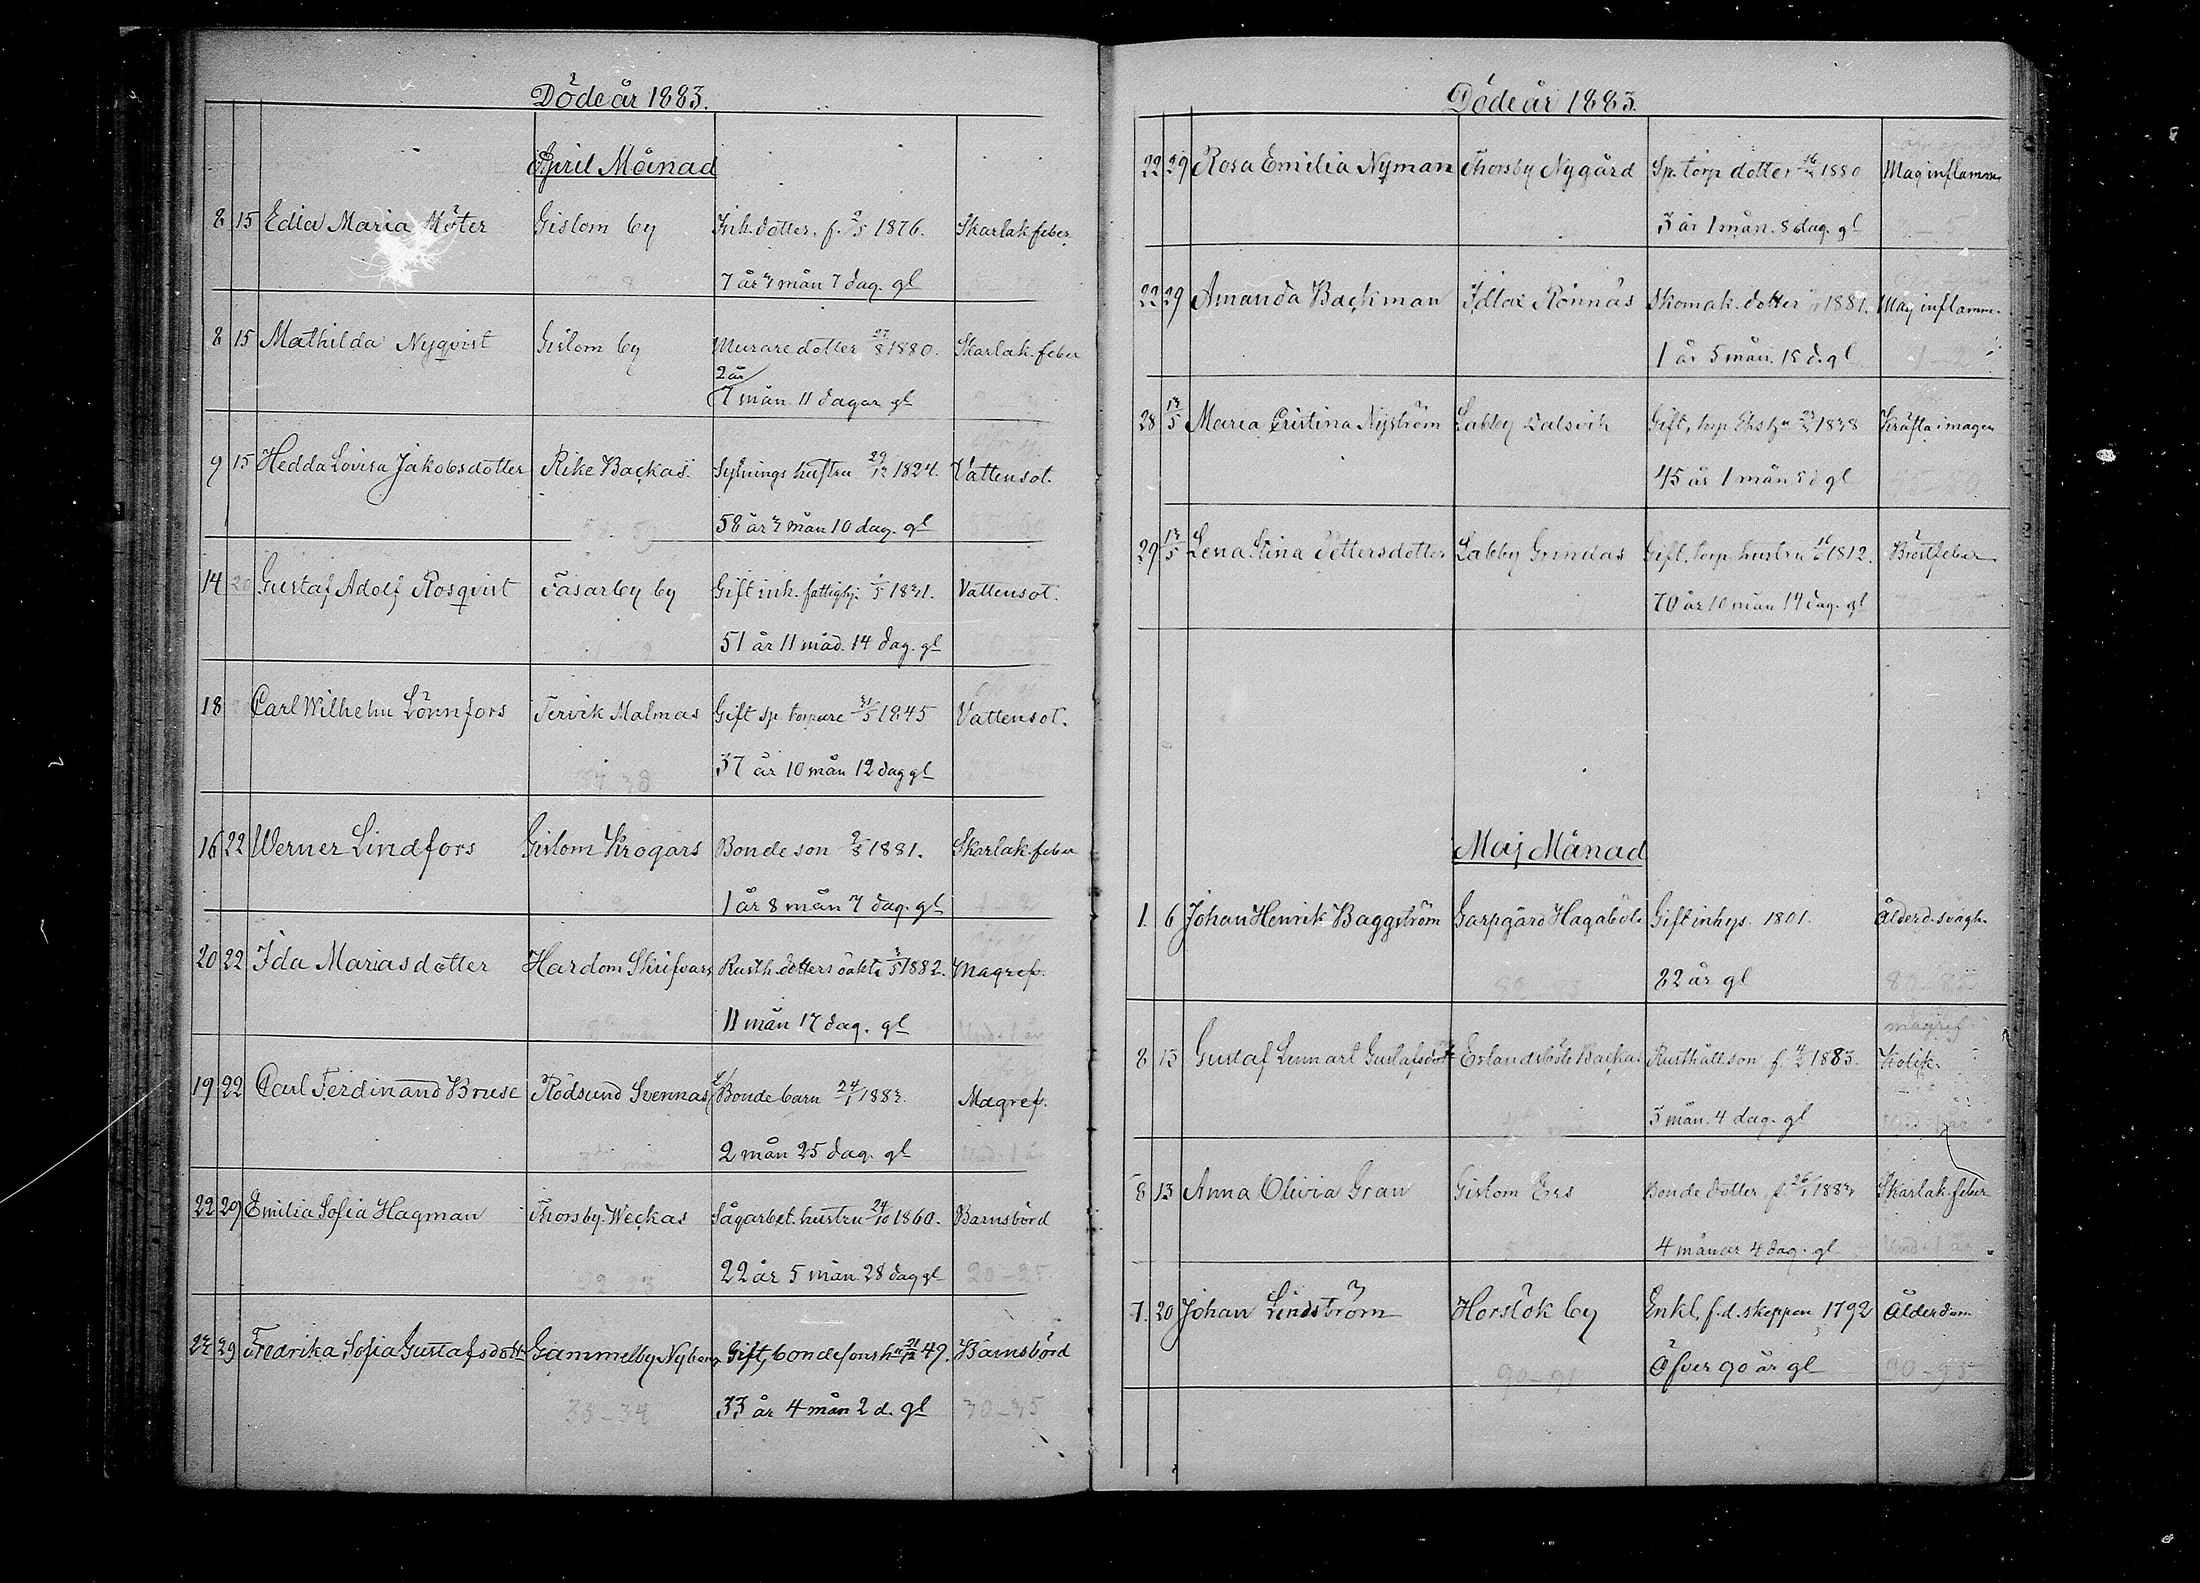 Döde år 1883.
April Månad
8 15 Edla Maria Möter Gislom by Inh. dotter. f. 2/5 1876. Skarlak.feber
7 år 3 mån 7 dag. gl
8 15 Mathilda Nyqvist Gislom by Murare dotter 27/8 1880. Skarlak.feber
2 år
7 mån 11 dagar gl
9 15 Hedda Lovisa Jakobsdotter Rike Backas. Sytnings hustru 29/12 1824. Vattensot.
58 år 3 mån 10 dag. gl
14 20 Gustaf Adolf Rosqvist Fasarby by Gift inh. fattighj. 1/5 1831. Vattensot.
51 år 11 måd. 14 dag. gl
18 Carl Wilhelm Lönnfors Tervik Malmas Gift sp torpare 31/5 1845 Vattensot.
37 år 10 mån 12 dag gl
37 38
16 22 Werner Lindfors Gislom Krogars Bonde son 9/8 1881. Skarlak.feber
1 år 8 mån 7 dag. gl
20 22 Ida Mariasdotter Hardom Skrifvars Rusth. dotters oäkta 3/5 1882. Magref.
11 mån 17 dag. gl
19 22 Carl Ferdinand Bruse Rödsund Svennas Bonde barn 24/1 1883. Magref.
2 mån 25 dag. gl
22 29 Emilia Sofia Hagman Thorsby Weckas Sågarbet. hustru 24/10 1860. Barnsbörd
22 år 5 mån. 28 dag gl
22 23 20-25
23 29 Fredrika Sofia Gustafsdott Gammelby Nybonds Gift, bondesons hu 21/12 49. Barnsbörd
33 år 4 mån 2 d. gl
33-34 30-35
Döde år 1883.
22 29 Rosa Emilia Nyman Thorsby Nygård Sp. torp dotter 1880 Mag inflamm
3 år 1 mån. 8 dag. gl
22 29 Amanda Backman Idlax Rönnäs Skomak. dotter 1881. Mag inflamm.
1 år 5 mån. 18 d. gl
1-2
28 13/5 Maria Cristina Nyström Labby Dalsvik Gift, torp. 1838 Kräfta i magen
45 år 1 mån 5 d gl
45-50
29 13/5 Lena Stina Pettersdotter Labby Grindas Gift, torp. hustru 1812. Bröstfeber
70 år 10 mån 14 dag. gl
Maj Månad
1. 6 Johan Henrik Baggström Garpgård Hagaböle Gift inhys. 1801. Ålderd. svagh.
82 år gl
8 13 Gustaf Lennart Gustafsdott Erlandsböle Backas Rusthåll son f. 4/2 1883. Kolik.
magref
3 mån. 4 dag. gl
8 13 Anna Olivia Gran Gislom Ers Bonde dotter f. 1883 Skarlak.feber
4 månar 4 dag. gl
7. 20 Johan Lindström Horslök by Enkl. f.d. skeppen 1792 Ålderdom
Öfver 90 år gl
90-91 90-95